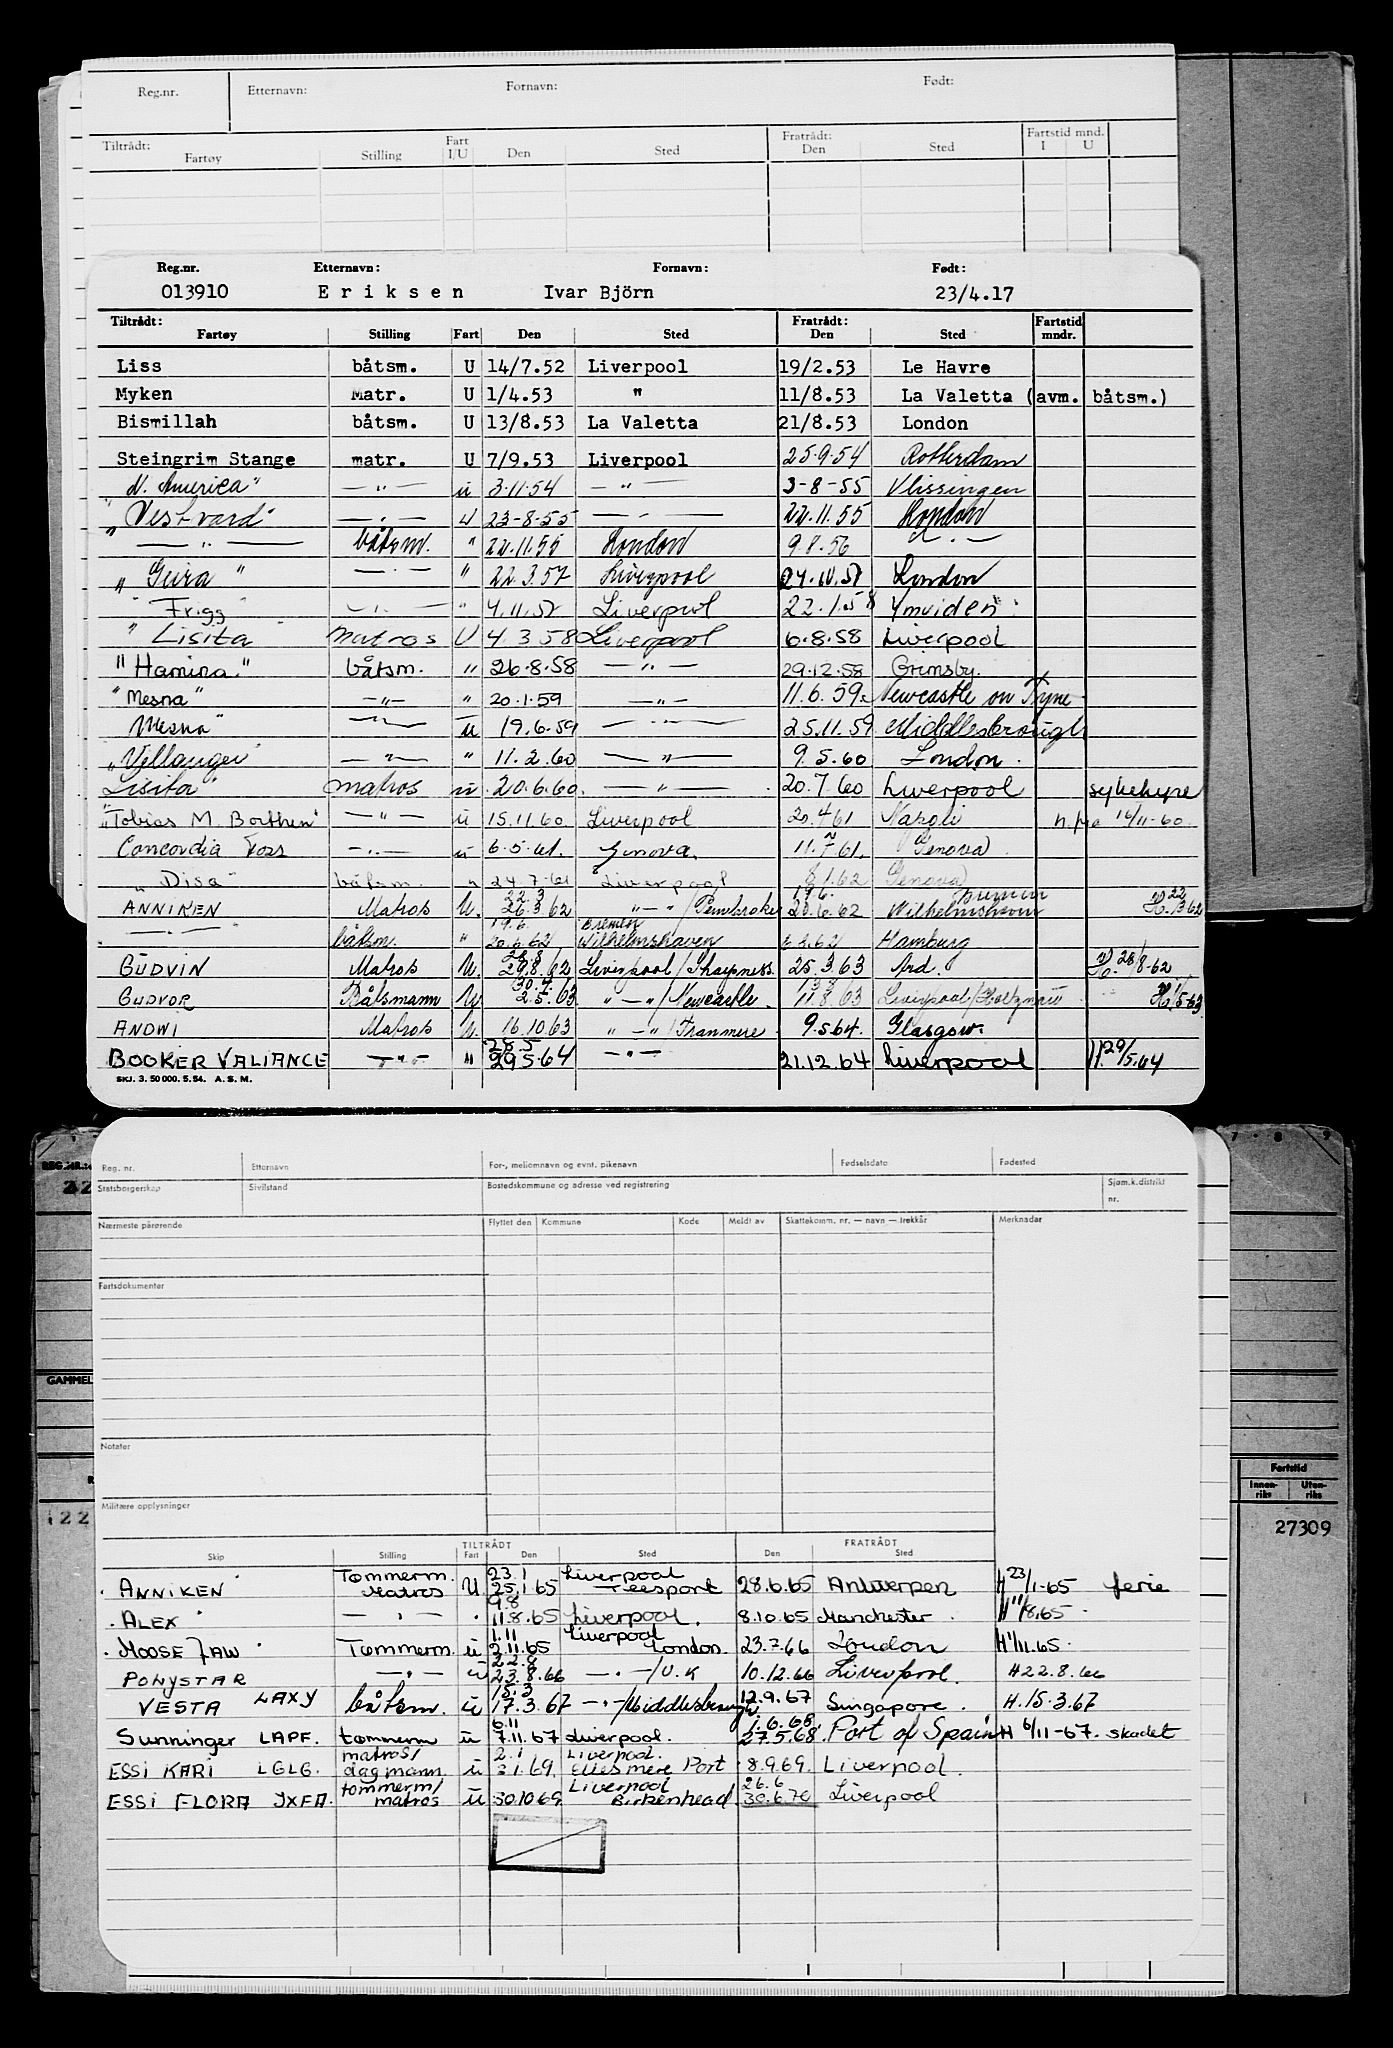 Reg.nr. Etternavn: Fornavn: Født:
Tiltrådt: Fartøy Stilling Fart I/U Den Sted Fratrådt: Den Sted Fartstid mnd. I U
Reg.nr. Etternavn: Fornavn: Født:
013910 Eriksen Ivar Björn 23/4.17
Tiltrådt: Fartøy Stilling Fart Den Sted Fratrådt: Den Sted Fartstid mndr.
Liss båtsm. U 14/7.52 Liverpool 19/2.53 Le Havre
Myken Matr. U 1/4.53 " 11/8.53 La Valetta (avm. båtsm.)
Bismillah båtsm. U 13/8.53 La Valetta 21/8.53 London
Steingrim Stange matr. U 7/9.53 Liverpool 25.9.54 Rotterdam
"N. America" —"— u 3.11.54 —"— 3-8-55 Vlissingen
"Vestvard" —"— U 23-8-55 —"— 22.11.55 London
—"— båtsm. " 22.11.55 London 9.8.56 —"—
"Geira" —"— " 22.3.57 Liverpool London
"Frigg" —"— " 4.11.57 Liverpool 22.1.58 Ymuiden
"Lisita" Matros U 4.3.58 Liverpool 6.8.58 Liverpool
"Hamina" båtsm. " 26.8.58 —"— 29.12.58 Grimsby.
"Mesna" —"— " 20.1.59 —"— 11.6.59 Newcastle on Tyne
Mesna" —"— u 19.6.59 —"— 25.11.59 Middlesbrough
"Villanger" —"— " 11.2.60 —"— 9.5.60 London.
Lisita" matros u 20.6.60. —"— 20.7.60 Liverpool sykehype
"Tobias M. Borthen" —"— u 15.11.60 Liverpool 20.4.61 Napoli 16/11-60.
Concordia Foss —"— u 6.5.61. Genova. 11.7.61. Genova.
"Disa" båtsm. " 24.7.61 Liverpool 8.1.62 Genova
22.3 19.6.
ANNIKEN Matros U. 26.3.62 —"—/Pembroke 20.6.62 Wilhelmshavn H. 22/3 62
19.6. Bremen
—"— båtsm. " 20.6.62 Wilhelmshaven 62 Hamburg
28.8
GUDVIN Matros U. 29.8.62 Liverpool/Sharpness 25.3.63 Ard. H. 28/8-62
30.4.
GUDVOR Båtsmann U. 2.5.63 "—"/Newcastle 11.8.63 Liverpool/Holtznau H. 1/5-63
ANDWI Matros U. 16.10.63 "—"/Tranmere 9.5.64. Glasgow.
28.5
BOOKER VALIANCE —"— " 29.5.64 —"— 21.12.64 Liverpool H. 29/5.64
SKJ. 3. 50 000. 5. 54. A. S. M.
7 • 8 9
REG.NR.:
Reg. nr. Etternavn For-, mellomnavn og evnt. pikenavn Fødselsdato Fødested
Statsborgerskap Sivilstand Bostedskommune og adresse ved registrering Sjøm.k.distrikt nr.
Nærmeste pårørende Flyttet den Kommune Kode Meldt av Skattekomm. nr. — navn — trekkår Merknader
Fartsdokumenter
GAMMEL
Notater
Fartstid
Innenriks Utenriks
Militære opplysninger
122
27309
TILTRÅDT FRATRÅDT
Skip Stilling Fart Den Sted Den Sted
Tømmerm. 23.1 Liverpool
ANNIKEN Matros U 25.1.65 Teesport 28.6.65 Antwerpen H 23/1-65 ferie
9.8
ALEX —"— " 11.8.65 Liverpool. 8.10.65 Manchester H 11/8.65
1.11 Liverpool
MOOSE JAW Tømmerm. u 2.11.65 London. 23.7.66 London H 1/11.65.
22.8
PONYSTAR —"— u 23.8.66 —"—/U.K 10.12.66 Liverpool. H 22.8.66
15.3
VESTA LAXY båtsm. u 17.3.67 —"—/Middlesbrough 12.9.67 Singapore. H. 15.3.67
6.11 1.6.68
Sunninger LAPF. tømmerm u 7.11.67 Liverpool. 27.5.68. Port of Spain H 6/11-67. skadet
matros/ 2.1 Liverpool.
ESSI KARI LGLG. dagmann. u 3.1.69. Ellesmere Port 8.9.69. Liverpool.
tømmerm/ Liverpool 26.6
ESSI FLORA JXFA. matros u 30.10.69 Birkenhead 30.6.70 Liverpool